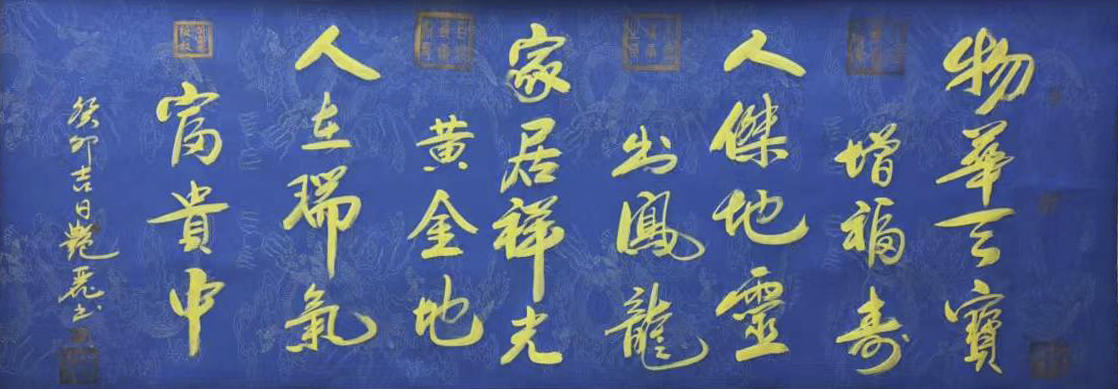 物華天寶
增福寿
人傑地靈
出鳳龍
家居祥光
黄金地
人在瑞氣
富貴中
癸卯吉日艷麗书